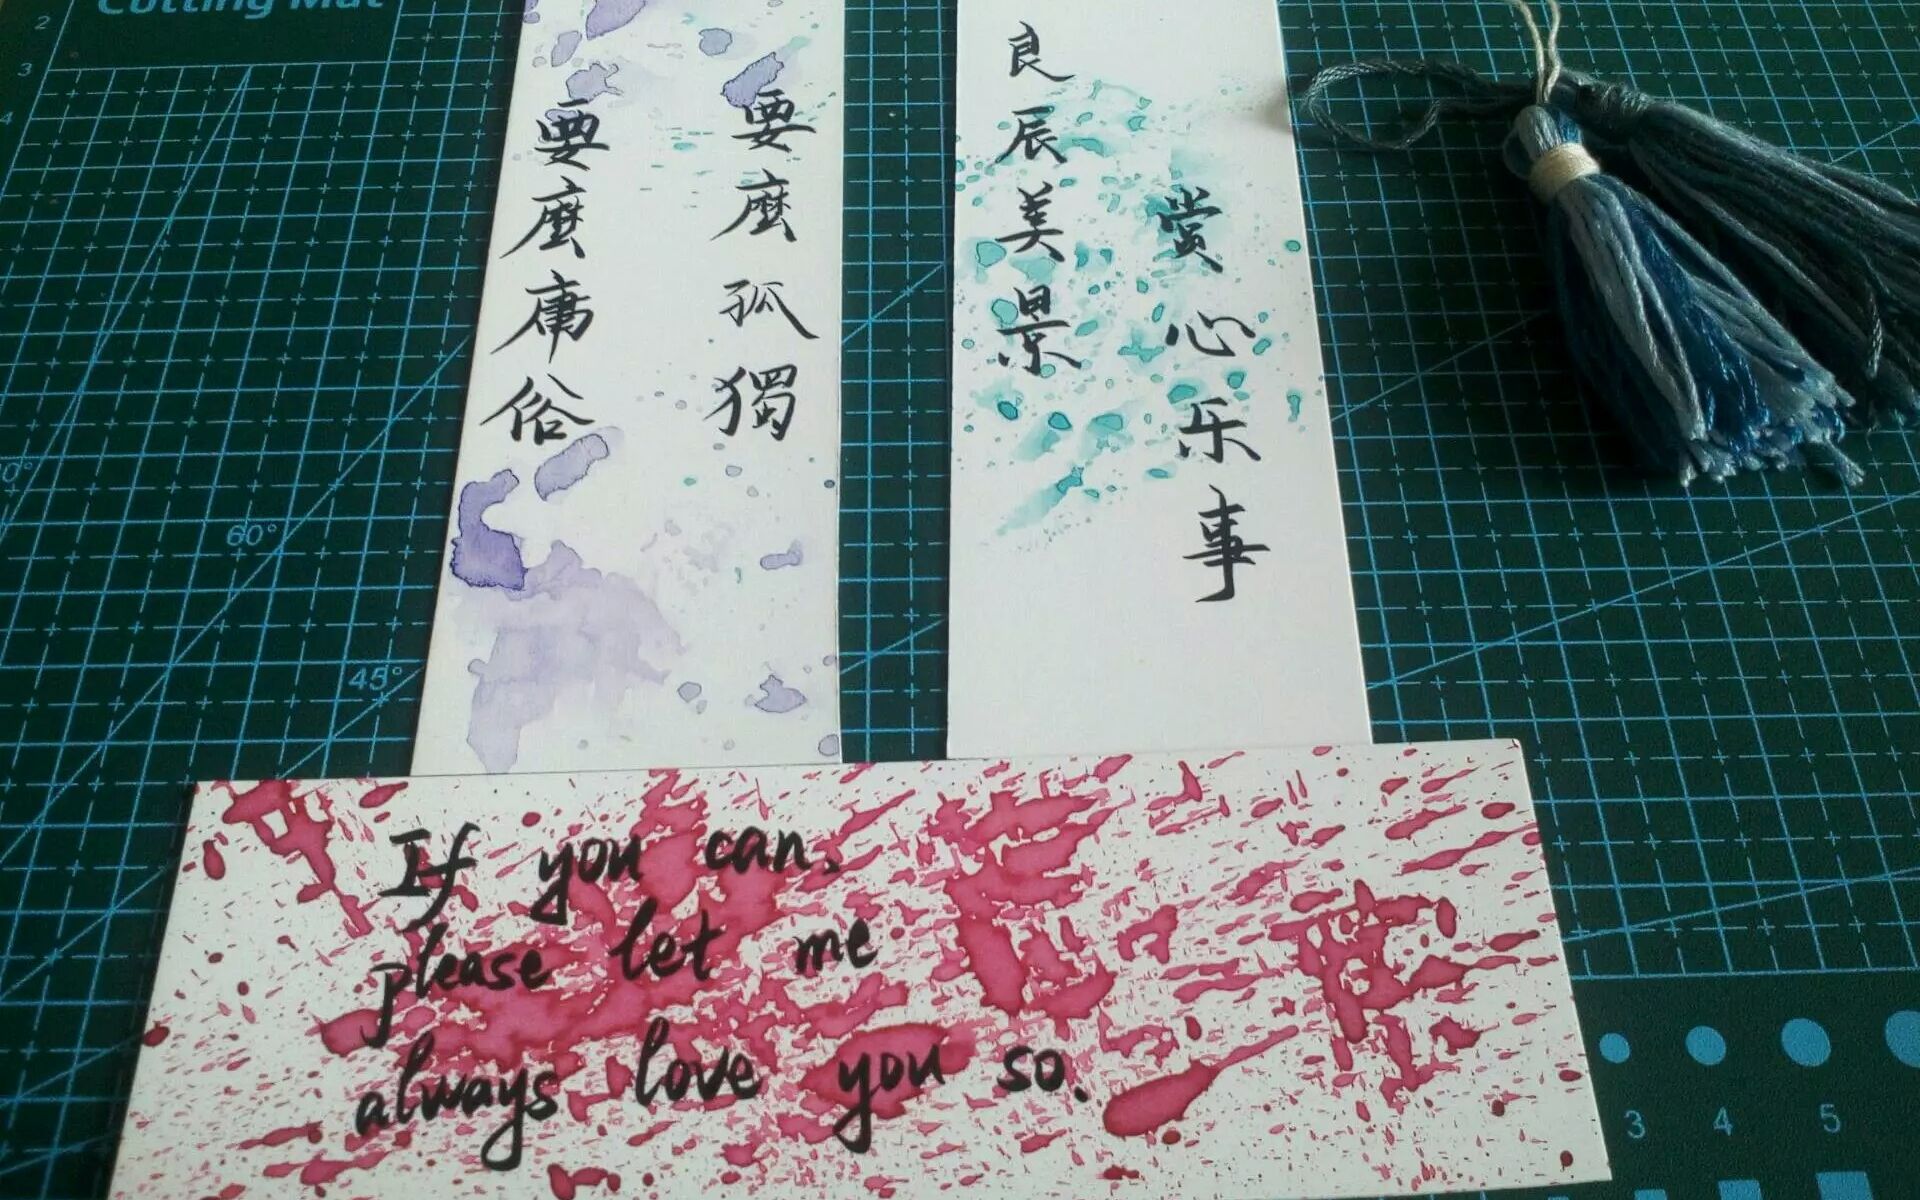 Cutting Mat
2
3
4
60°
45°
要麼孤獨
要麼庸俗
良辰美景
赏心乐事
If you can,
please let me
always love you so.
3 4 5